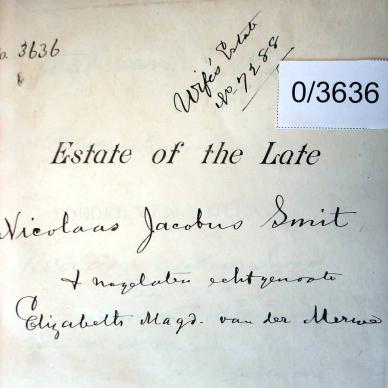 No. 3636
Wife's Estate
No. 7288
0/3636
Estate of the Late
Nicolaas Jacobus Smit
& nagelaten echtgenoote
Elizabeth Magd. van der Merwe